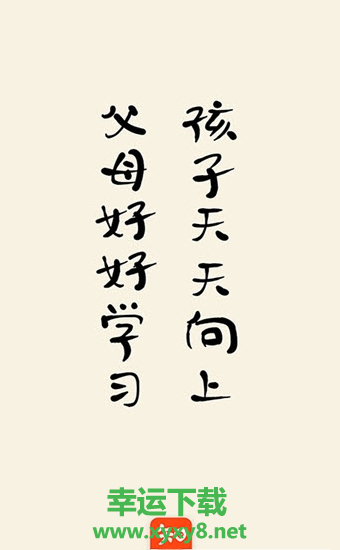 父母好好学习
孩子天天向上
幸运下载
www.xyxy8.net